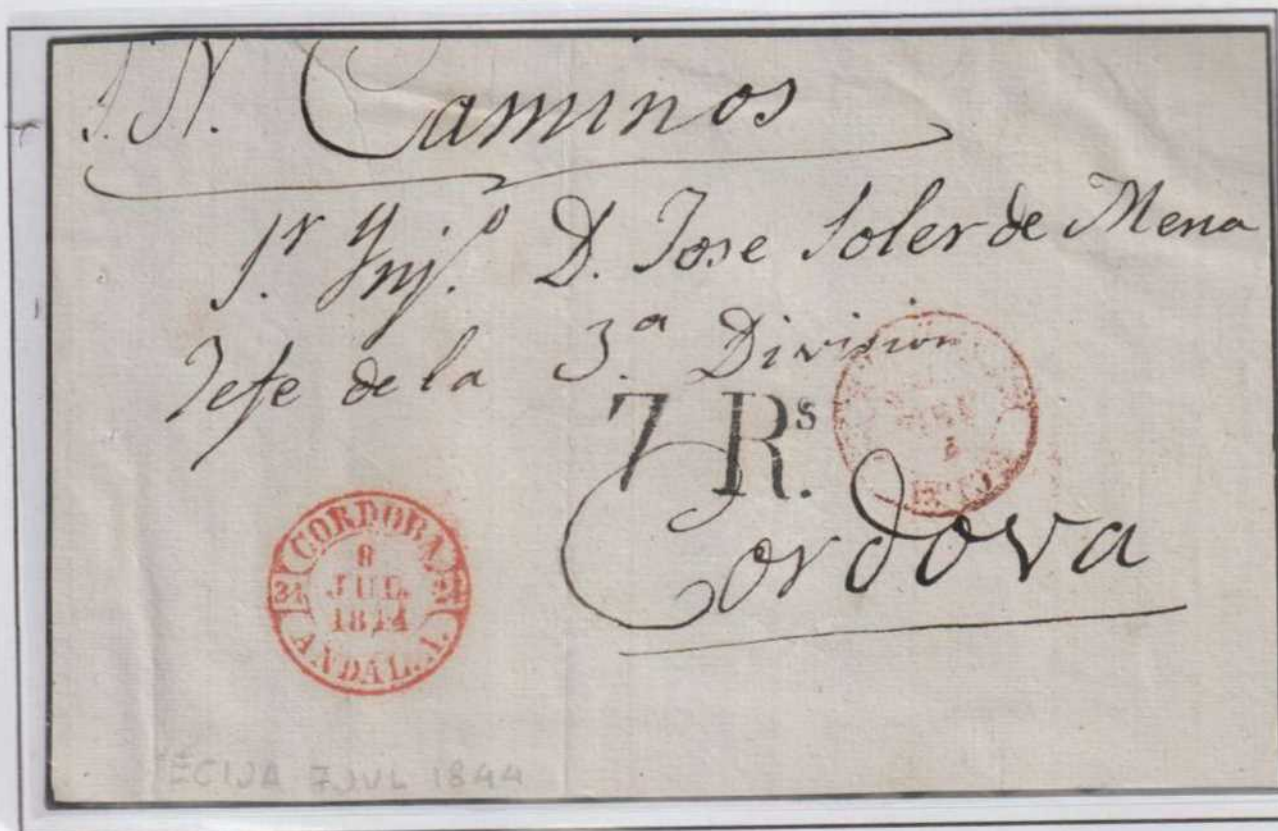 S.N. Caminos
Sr. Ynj.º D. Jose Soler de Mena
Jefe de la 3.ª División
7 Rs.
Cordova
CORDOBA
8
JUL.
1844
ANDAL. A.
ECIJA 7 JUL 1844